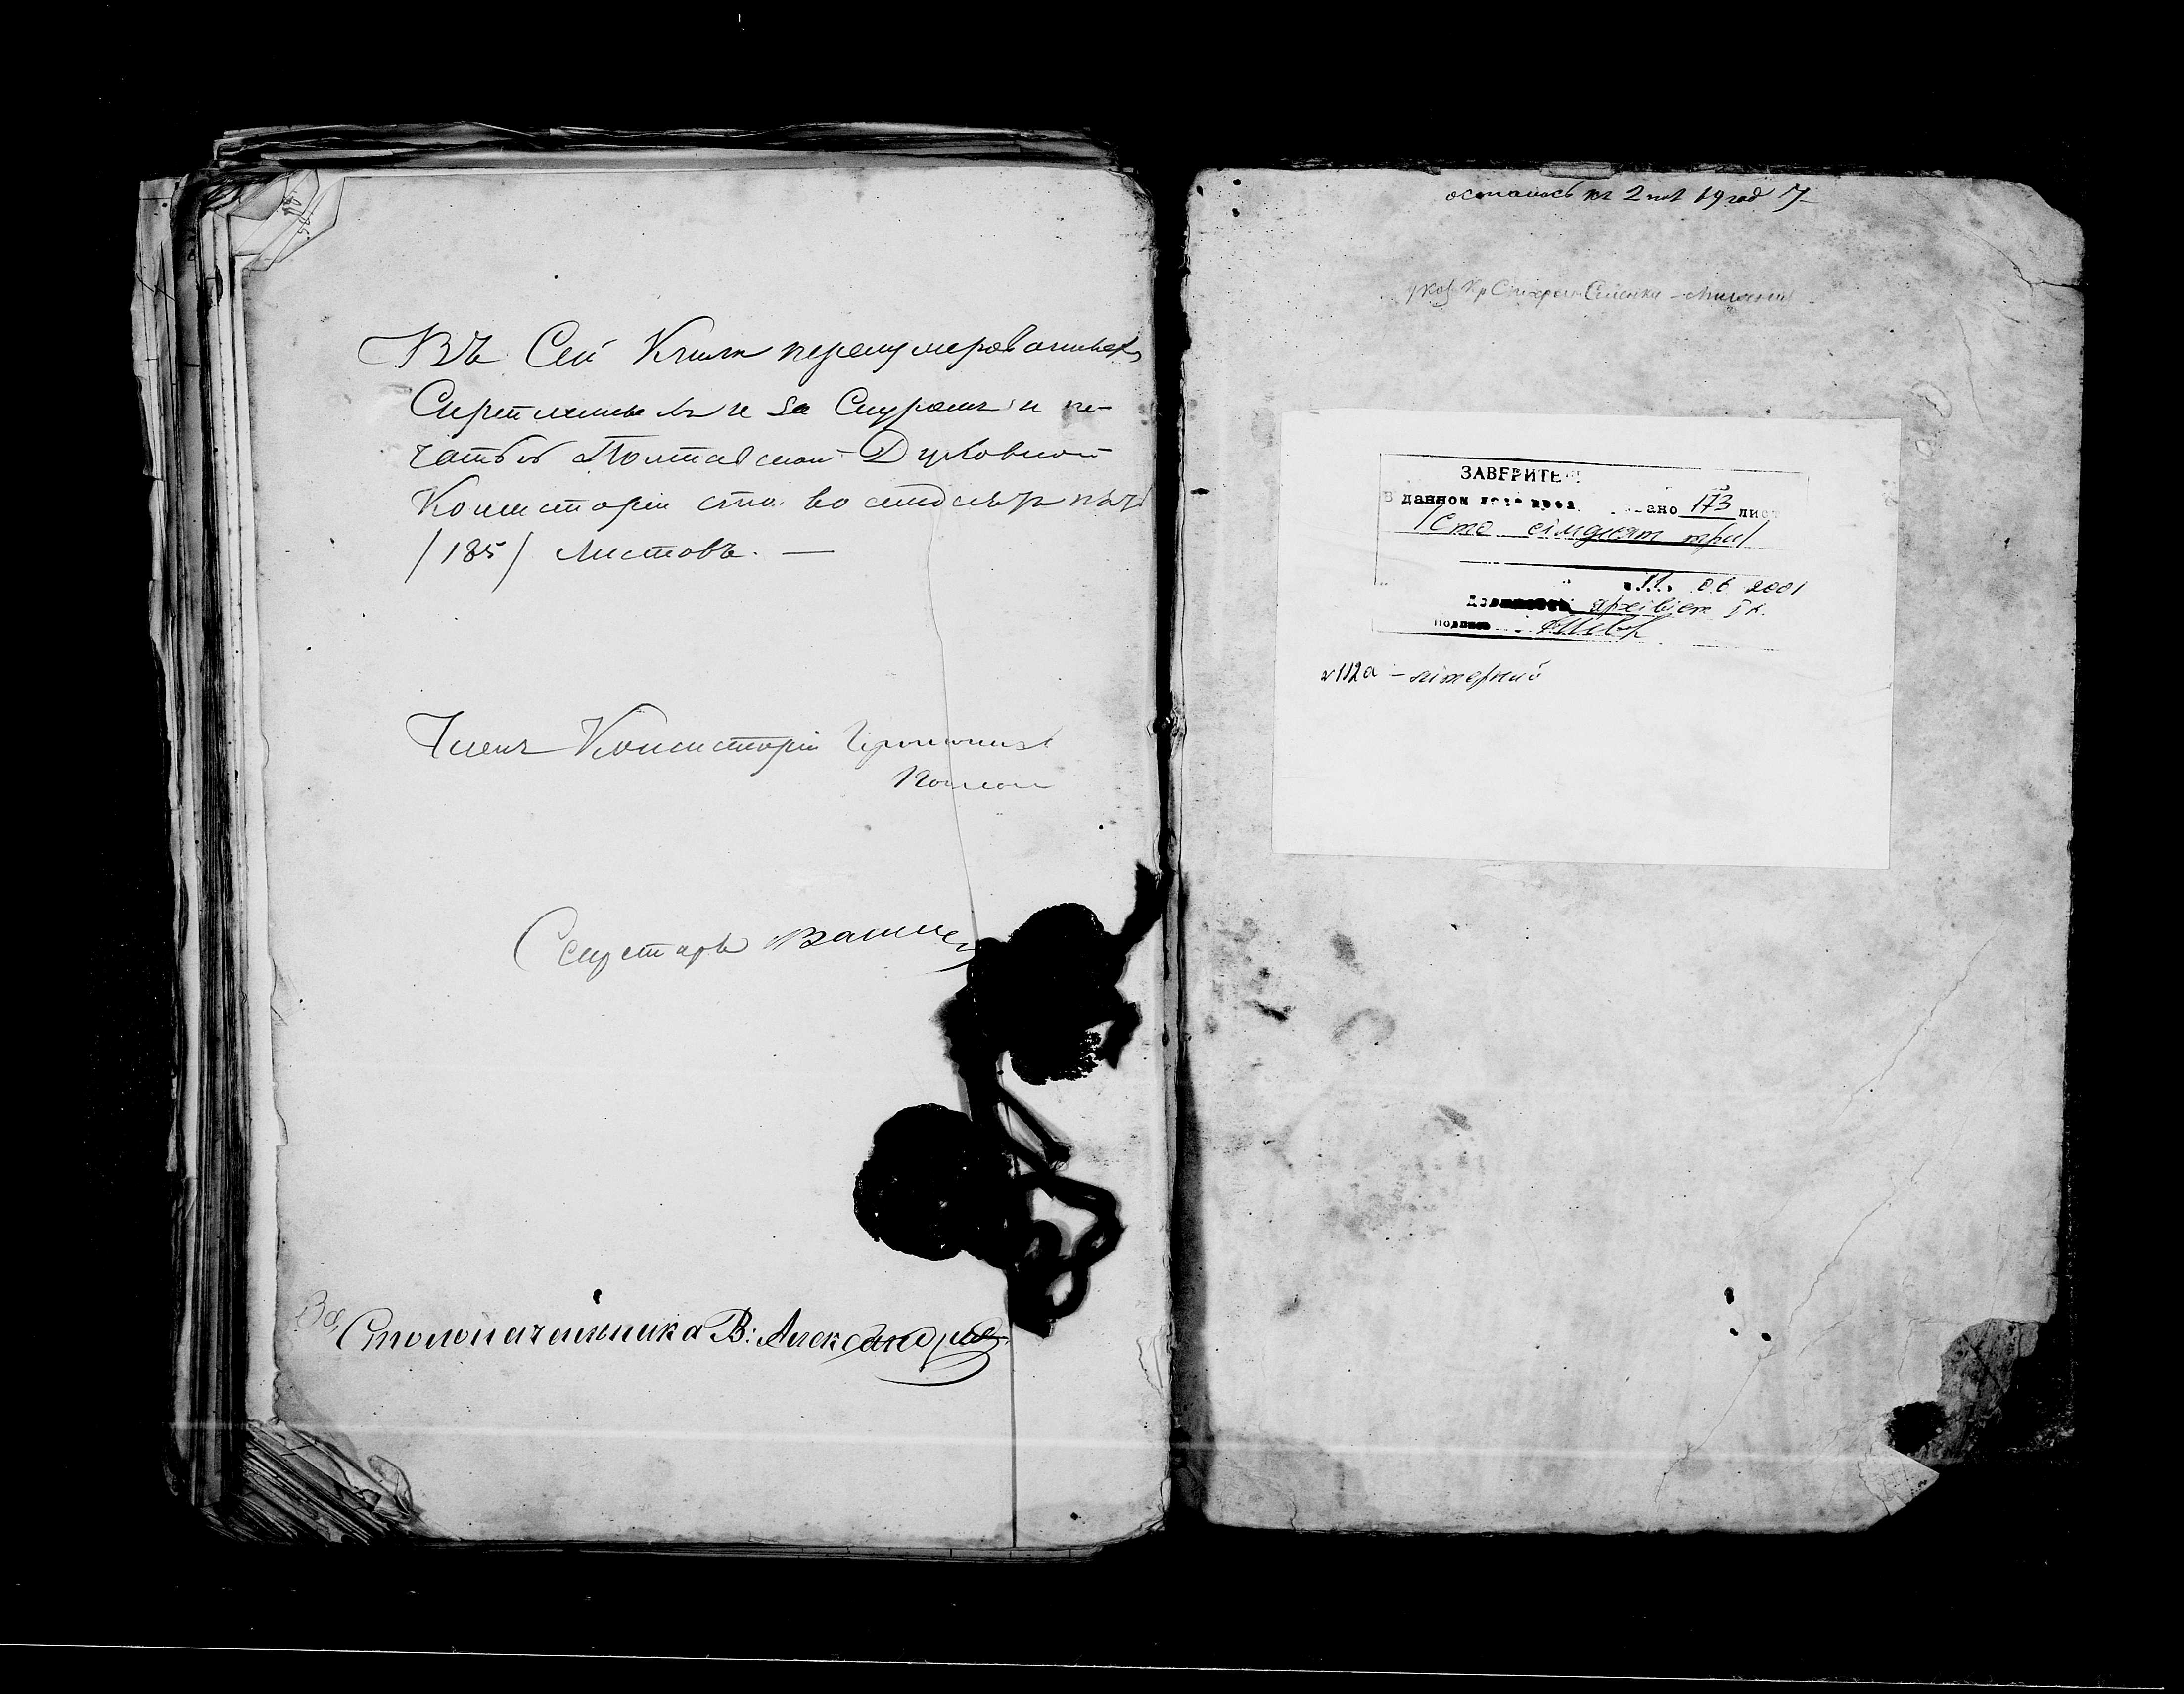 Въ Сей Книгѣ перенумерованныхъ
Скрепленныхъ и за Снуромъ и пе-
чатью Полтавской Духовной
Консисторіи сто восемдесятъ пять
/185/ Листовъ. —
Членъ Консисторіи
Секретарь
За Столоначальника В: Александров
осталось къ 2 19 год 7
ЗАВЕРИТЕ
В данном ано 173 лис
/Сто сімдесят три/
11. 06 2001
Должность архівіст І к.
Подпись
№112а – літерний